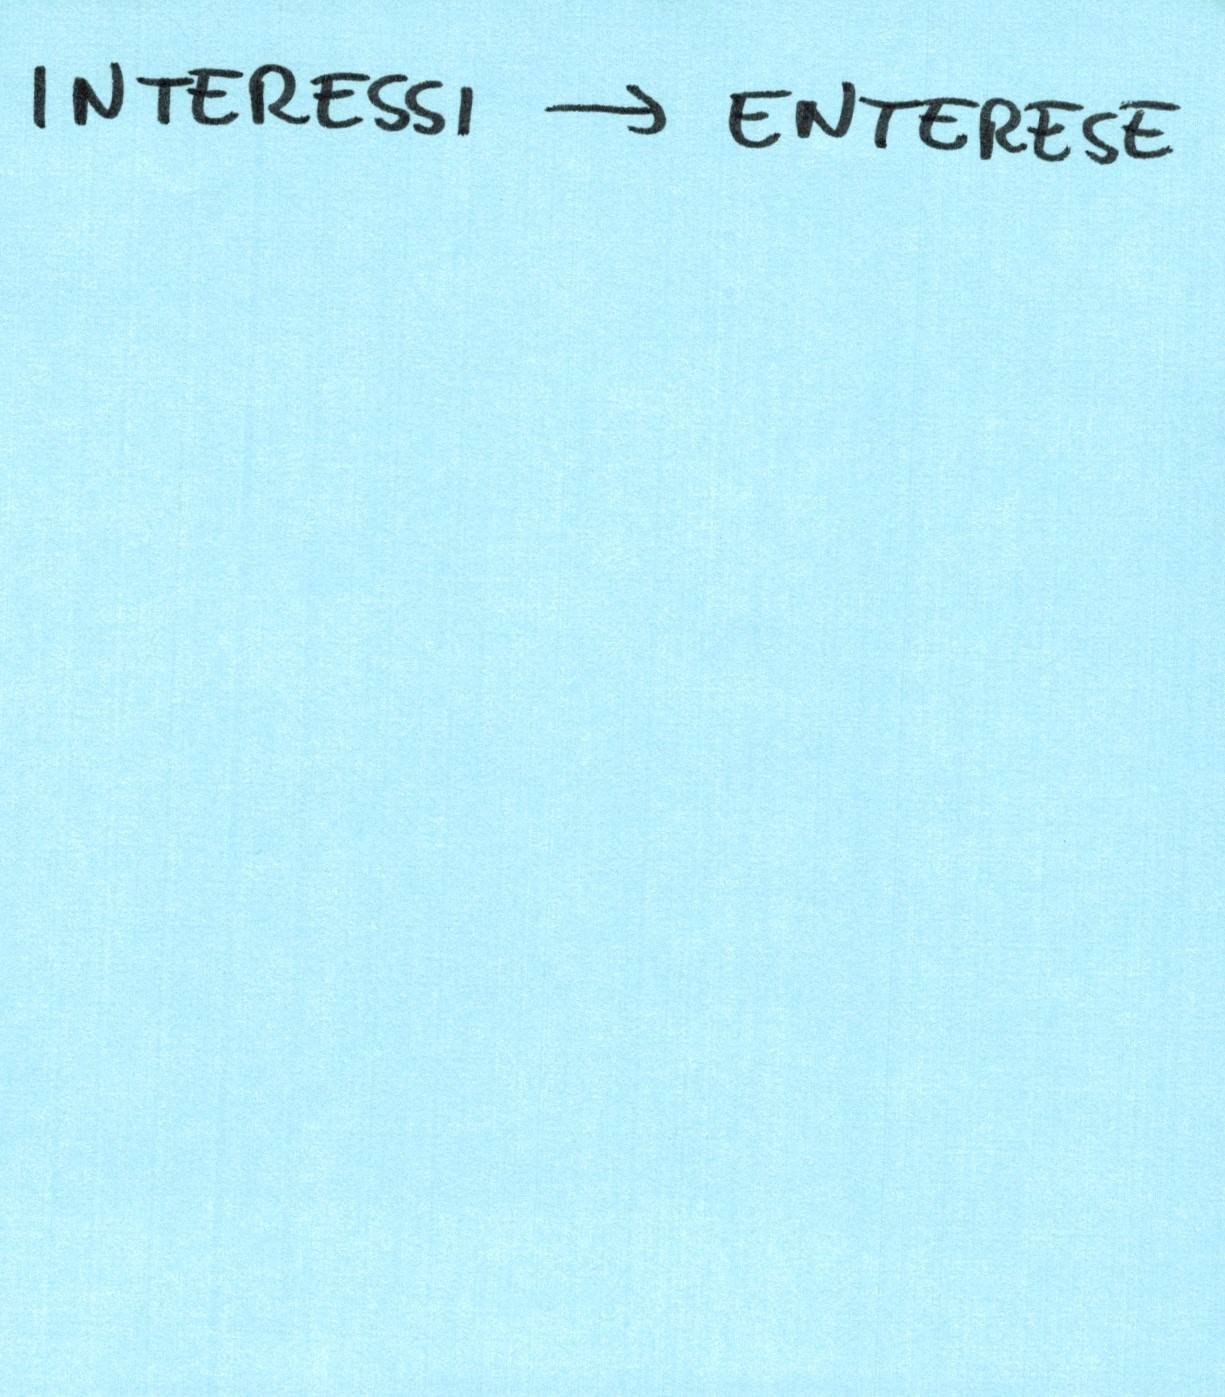 INTERESSI → ENTERESE